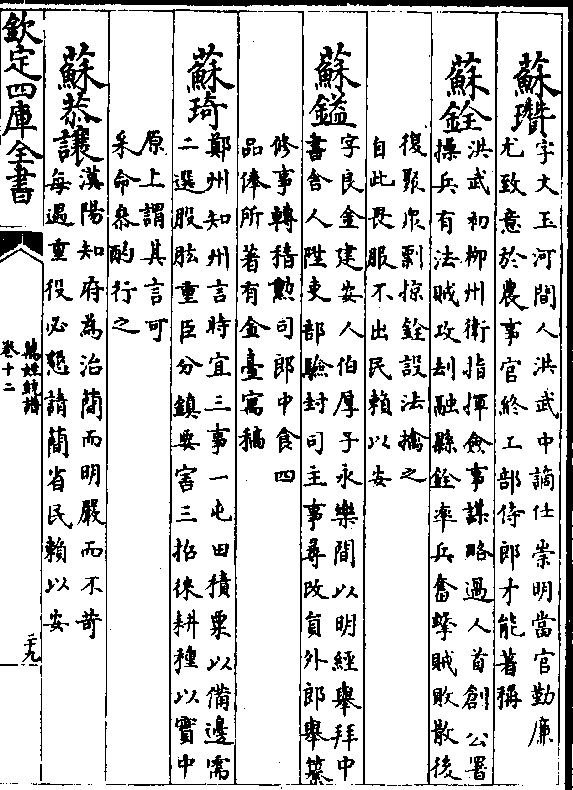 蘇瓚
字大玉河間人洪武中謫仕崇明當官勤廉
尤致意於農事官終工部侍郎才能著稱
蘇銓
洪武初柳州衛指揮僉事謀略過人首創公署
操兵有法賊攻刦融縣銓率兵奮擊賊敗散後
復聚衆剽掠銓設法擒之
自此畏服不出民賴以安
蘇鎰
字良金建安人伯厚子永樂間以明經舉拜中
書舍人陞吏部驗封司主事尋改員外郎舉纂
修事轉稽勲司郎中食四
品俸所著有金臺寓稿
蘇琦
鄭州知州言時宜三事一屯田積粟以備邊需
二選股肱重臣分鎮要害三招徠耕種以實中
原上謂其言可
采命衆酌行之
蘇恭讓
漢陽知府為治簡而明嚴而不苛
每過重役必懇請蠲省民賴以安
欽定四庫全書
萬姓統譜
卷十二
二十九